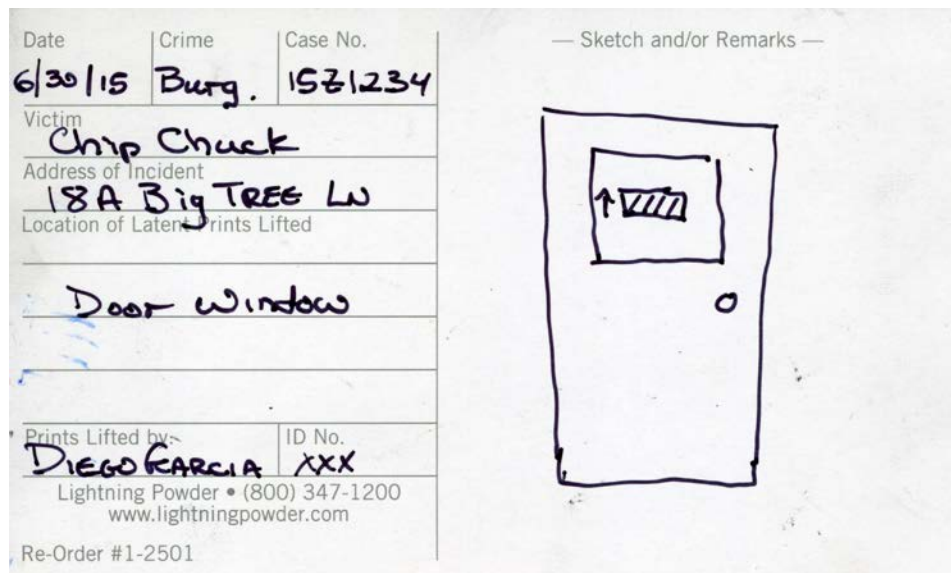 Date Crime Case No.
6/30/15 Burg. 15Z1234
Victim
Chip Chuck
Address of Incident
18A Big TREE LN
Location of Latent Prints Lifted
Door Window
Prints Lifted by: ID No.
DIEGO GARCIA XXX
Lightning Powder • (800) 347-1200
www.lightningpowder.com
Re-Order #1-2501
— Sketch and/or Remarks —